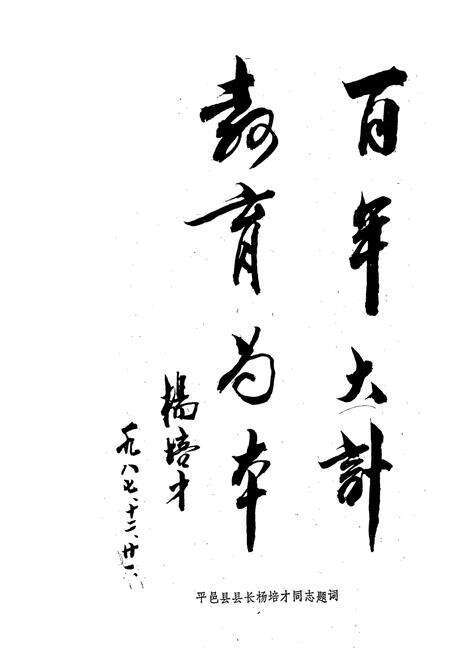 百年大計
教育为本
楊培才
一九八七、十二、廿一、
平邑县县长杨培才同志题词